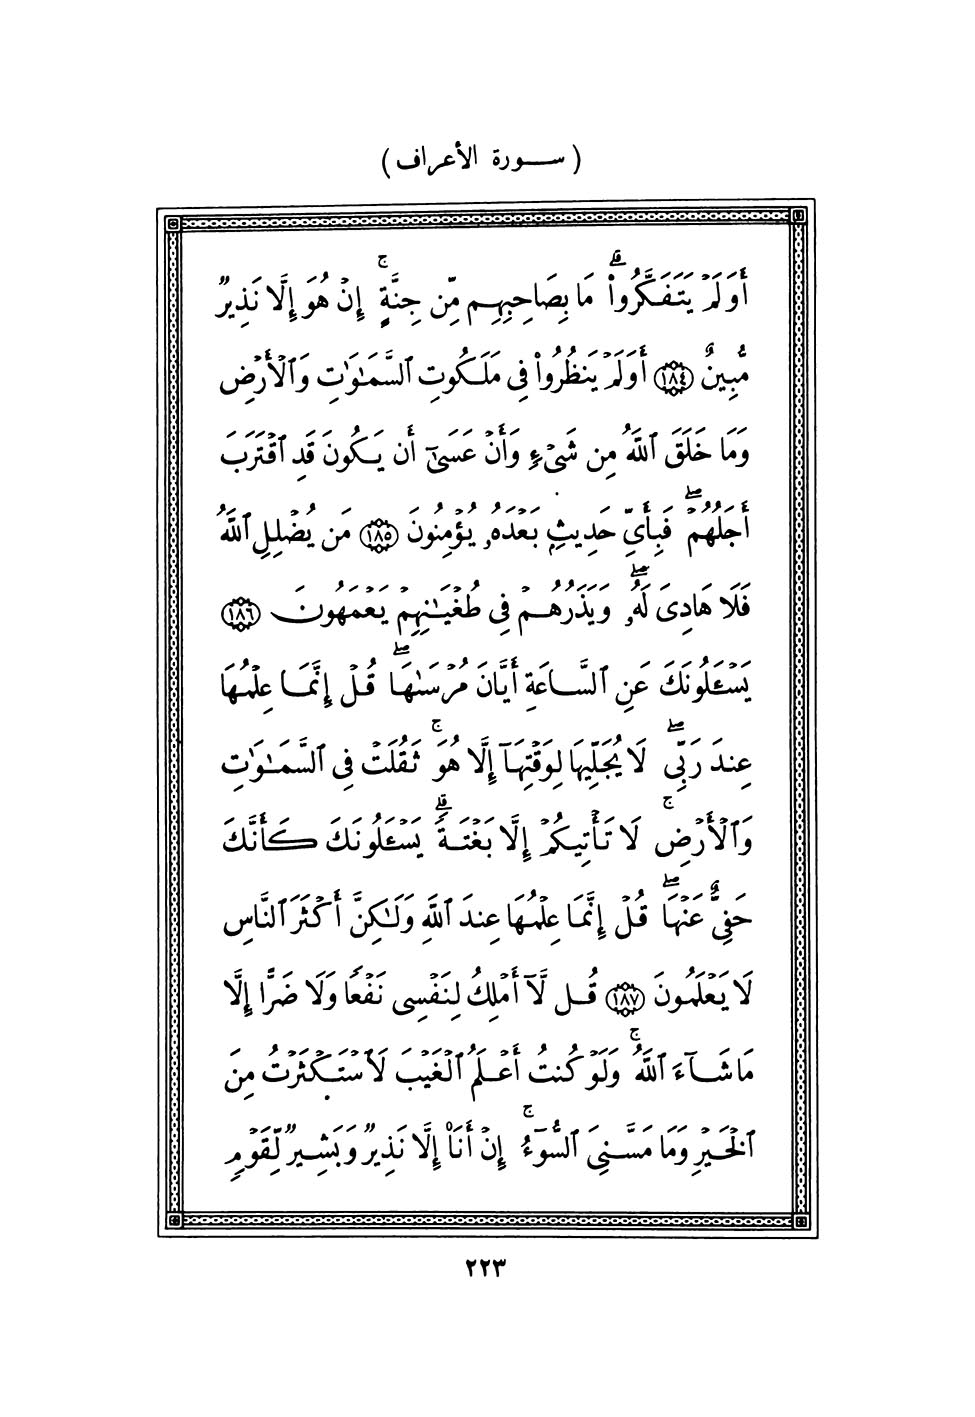 ( سورة الأعراف )
أَوَلَمْ يَتَفَكَّرُوا۟ ۗ مَا بِصَاحِبِهِم مِّن جِنَّةٍ ۚ إِنْ هُوَ إِلَّا نَذِيرٌ
مُّبِينٌ ١٨٤ أَوَلَمْ يَنظُرُوا۟ فِى مَلَكُوتِ ٱلسَّمَـٰوَٰتِ وَٱلْأَرْضِ
وَمَا خَلَقَ ٱللَّهُ مِن شَىْءٍ وَأَنْ عَسَىٰٓ أَن يَكُونَ قَدِ ٱقْتَرَبَ
أَجَلُهُمْ ۖ فَبِأَىِّ حَدِيثٍۭ بَعْدَهُۥ يُؤْمِنُونَ ١٨٥ مَن يُضْلِلِ ٱللَّهُ
فَلَا هَادِىَ لَهُۥ ۖ وَيَذَرُهُمْ فِى طُغْيَـٰنِهِمْ يَعْمَهُونَ ١٨٦
يَسْـَٔلُونَكَ عَنِ ٱلسَّاعَةِ أَيَّانَ مُرْسَىٰهَا ۖ قُلْ إِنَّمَا عِلْمُهَا
عِندَ رَبِّى ۖ لَا يُجَلِّيهَا لِوَقْتِهَآ إِلَّا هُوَ ۚ ثَقُلَتْ فِى ٱلسَّمَـٰوَٰتِ
وَٱلْأَرْضِ ۚ لَا تَأْتِيكُمْ إِلَّا بَغْتَةً ۗ يَسْـَٔلُونَكَ كَأَنَّكَ
حَفِىٌّ عَنْهَا ۖ قُلْ إِنَّمَا عِلْمُهَا عِندَ ٱللَّهِ وَلَـٰكِنَّ أَكْثَرَ ٱلنَّاسِ
لَا يَعْلَمُونَ ١٨٧ قُل لَّآ أَمْلِكُ لِنَفْسِى نَفْعًا وَلَا ضَرًّا إِلَّا
مَا شَآءَ ٱللَّهُ ۚ وَلَوْ كُنتُ أَعْلَمُ ٱلْغَيْبَ لَٱسْتَكْثَرْتُ مِنَ
ٱلْخَيْرِ وَمَا مَسَّنِىَ ٱلسُّوٓءُ ۚ إِنْ أَنَا۠ إِلَّا نَذِيرٌ وَبَشِيرٌ لِّقَوْمٍ
٢٢٣